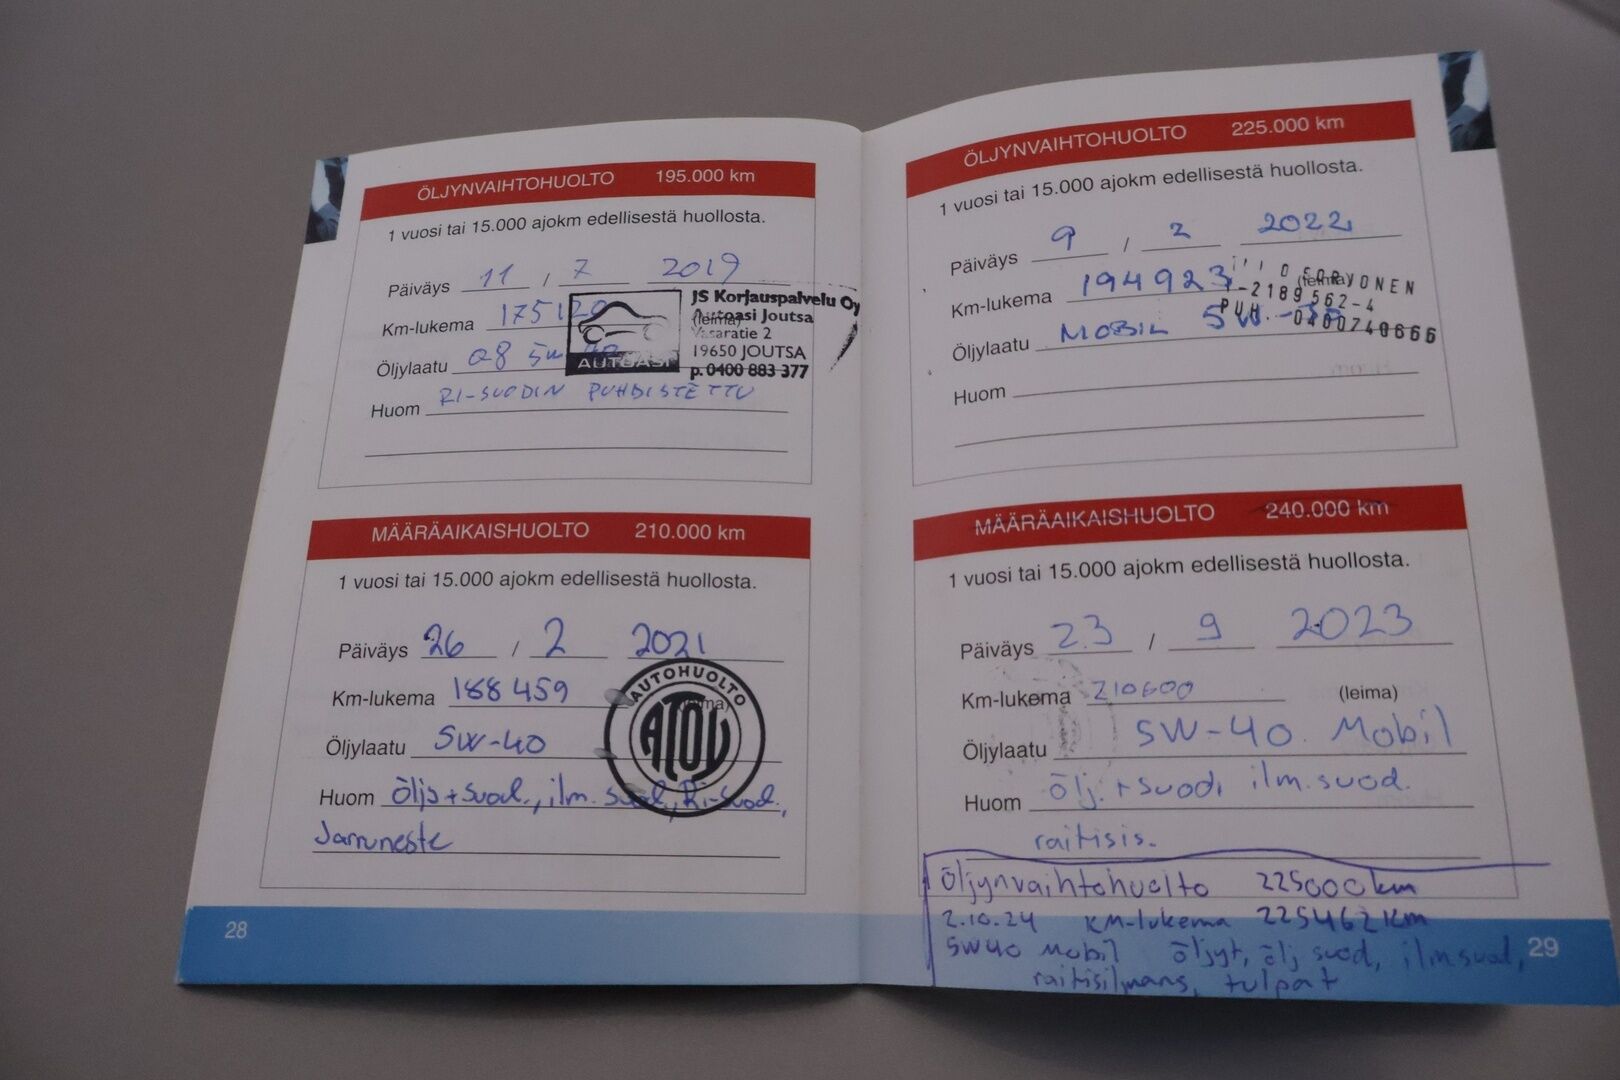 ÖLJYNVAIHTOHUOLTO 195.000 km
1 vuosi tai 15.000 ajokm edellisestä huollosta.
Päiväys 11 / 7 2019
Km-lukema 175120
(leima)
JS Korjauspalvelu Oy
Autoasi Joutsa
Vasaratie 2
19650 JOUTSA
p. 0400 883 377
AUTOASI
Öljylaatu Q8 5w 40
Huom RI-SUODIN PUHDISTETTU
MÄÄRÄAIKAISHUOLTO 210.000 km
1 vuosi tai 15.000 ajokm edellisestä huollosta.
Päiväys 26 / 2 2021
Km-lukema 188 459
(leima)
AUTOHUOLTO
ATOV
Öljylaatu 5W-40
Huom ölj+suod., ilm. suod, Ri-suod.,
Jarruneste
28
ÖLJYNVAIHTOHUOLTO 225.000 km
1 vuosi tai 15.000 ajokm edellisestä huollosta.
Päiväys 9 / 2 2022
Km-lukema 194923
(leima)
SORVONEN
-2189562-4
PUH. 0400740666
Öljylaatu MOBIL 5W-30
Huom
MÄÄRÄAIKAISHUOLTO 240.000 km
1 vuosi tai 15.000 ajokm edellisestä huollosta.
Päiväys 23 / 9 2023
Km-lukema 210600 (leima)
Öljylaatu 5W-40 Mobil
Huom ölj. + suod, ilm.suod.
raitisis.
Öljynvaihtohuolto 225000km
2.10.24 KM-lukema 225462km
5W40 Mobil öljyt, ölj suod, ilmsuod,
raitisilmans, tulpat
29